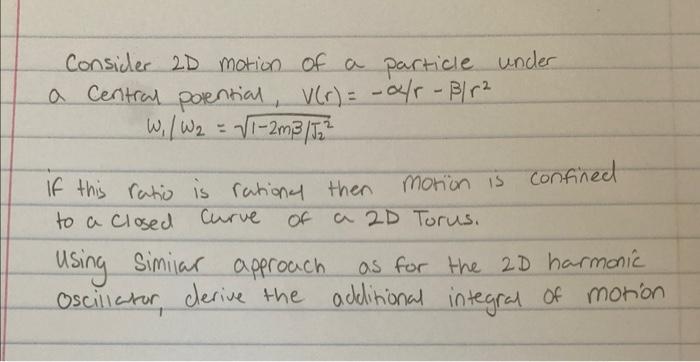 Consider 2D motion of a particle under
a central potential, V(r) = -α/r - β/r²
ω₁/ω₂ = √1-2mβ/J₂²
if this ratio is rational then motion is confined
to a closed curve of a 2D Torus.
Using similar approach as for the 2D harmonic
oscillator, derive the additional integral of motion